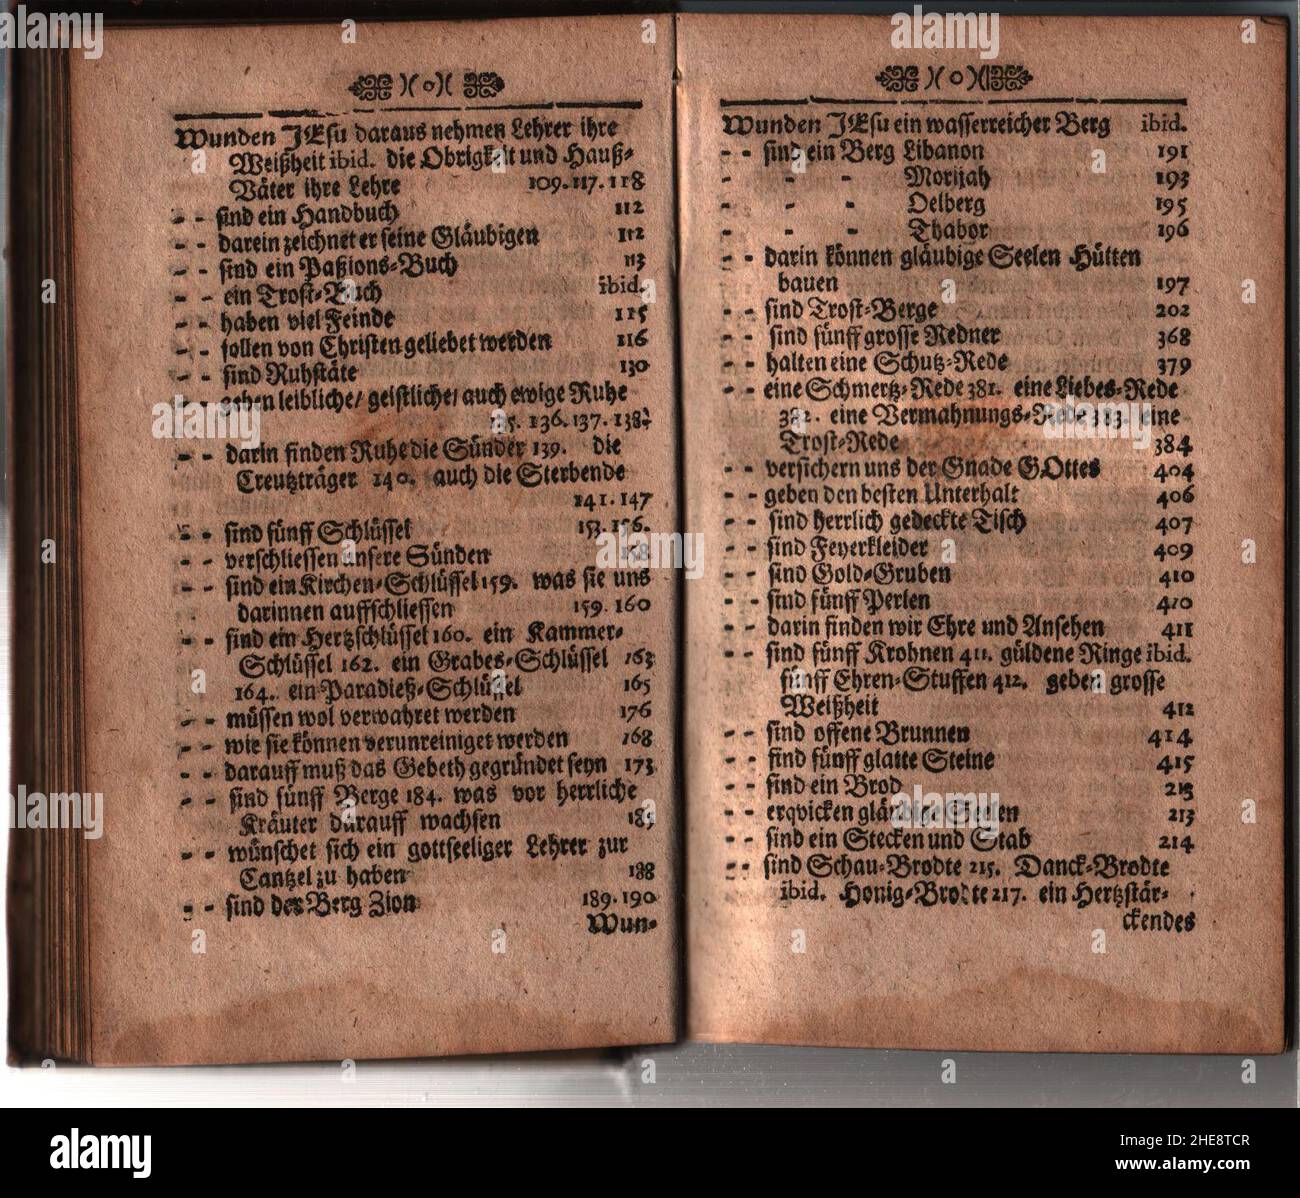 Wunden JEsu daraus nehmen Lehrer ihre
Weißheit ibid. die Obrigkeit und Hauß-
Väter ihre Lehre 109. 117. 118
- - sind ein Handbuch 112
- - darein zeichnet er seine Gläubigen 112
- - sind ein Paßions-Buch 113
- - ein Trost-Buch ibid.
- - haben viel Feinde 115
- - sollen von Christen geliebet werden 116
- - sind Ruhstäte 130
- - geben leibliche/ geistliche/ auch ewige Ruhe
135. 136. 137. 138.
- - darin finden Ruhe die Sünder 139. die
Creutzträger 140. auch die Sterbende
141. 147
- - sind fünff Schlüssel 153. 156.
- - verschliessen unsere Sünden 158
- - sind ein Kirchen-Schlüssel 159. was sie uns
darinnen auffschliessen 159. 160
- - sind ein Hertzschlüssel 160. ein Kammer-
Schlüssel 162. ein Grabes-Schlüssel 163
164. ein Paradieß-Schlüssel 165
- - müssen wol verwahret werden 176
- - wie sie können verunreiniget werden 168
- - darauff muß das Gebeth gegründet seyn 173
- - sind fünff Berge 184. was vor herrliche
Kräuter darauff wachsen 185
- - wünschet sich ein gottseeliger Lehrer zur
Cantzel zu haben 188
- - sind der Berg Zion 189. 190
Wun-
Wunden JEsu ein wasserreicher Berg ibid.
- - sind ein Berg Libanon 191
- - - Morijah 193
- - - Oelberg 195
- - - Thabor 196
- - darin können gläubige Seelen Hütten
bauen 197
- - sind Trost-Berge 202
- - sind fünff grosse Redner 368
- - halten eine Schutz-Rede 379
- - eine Schmertz-Rede 381. eine Liebes-Rede
382. eine Vermahnungs-Rede 383. eine
Trost-Rede 384
- - versichern uns der Gnade GOttes 404
- - geben den besten Unterhalt 406
- - sind herrlich gedeckte Tisch 407
- - sind Feyerkleider 409
- - sind Gold-Gruben 410
- - sind fünff Perlen 410
- - darin finden wir Ehre und Ansehen 411
- - sind fünff Krohnen 411. güldene Ringe ibid.
fünff Ehren-Stuffen 412. geben grosse
Weißheit 412
- - sind offene Brunnen 414
- - sind fünff glatte Steine 415
- - sind ein Brod 213
- - erqvicken gläubige Seelen 213
- - sind ein Stecken und Stab 214
- - sind Schau-Brodte 215. Danck-Brodte
ibid. Honig-Brodte 217. ein Hertzstär-
ckendes
alamy
Image ID: 2HE8TCR
www.alamy.com